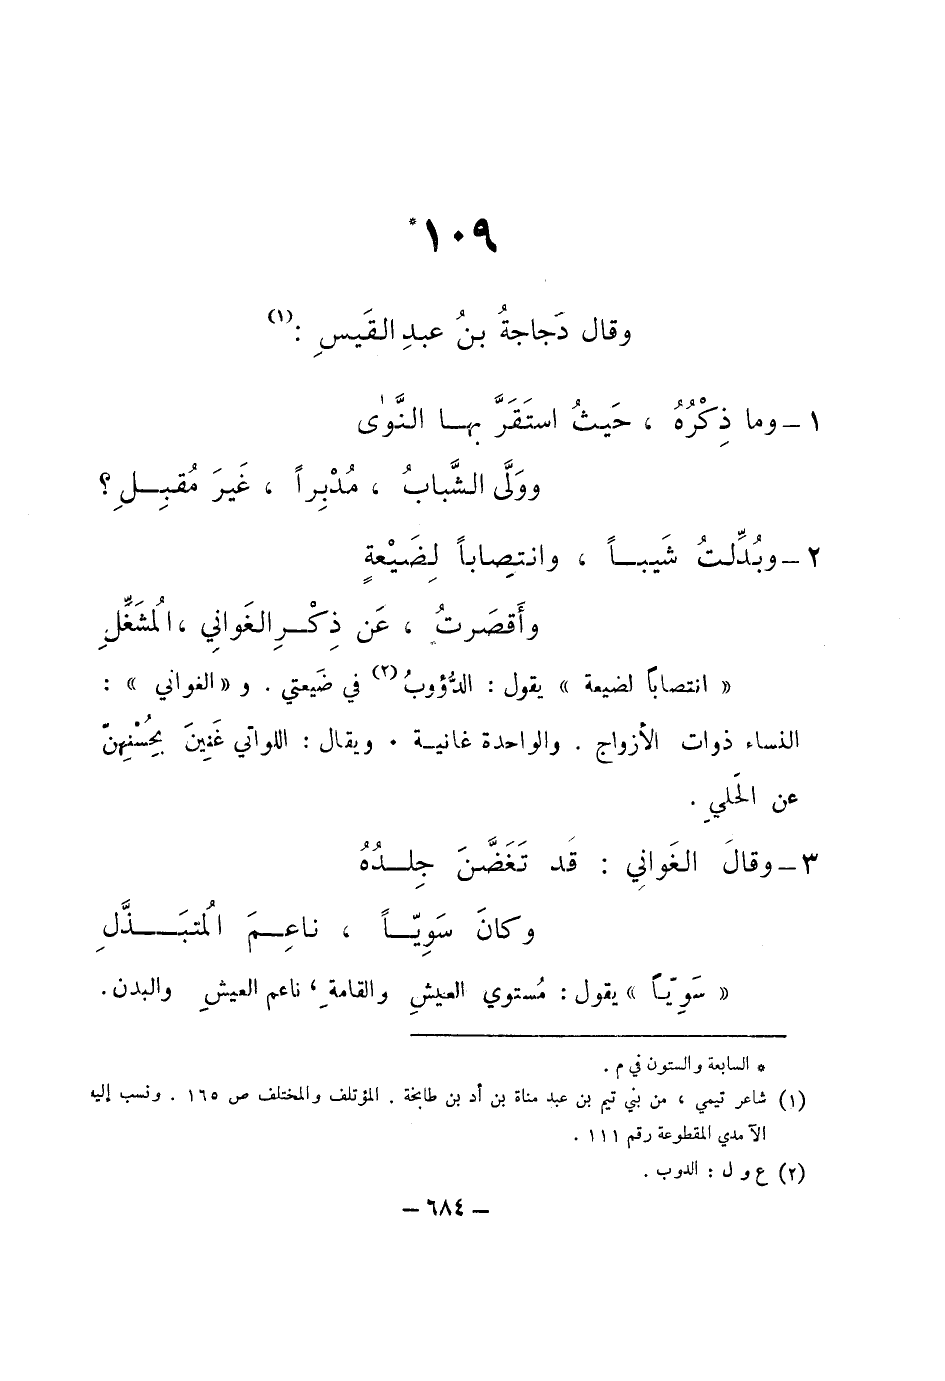 ١٠٩*
وقال دَجاجةُ بنُ عبدِ القَيسِ :(١)
١ – وما ذِكْرُهُ ، حَيثُ استَقَرَّ بها النَّوٰى
ووَلَّى الشَّبابُ ، مُدْبِراً ، غَيرَ مُقبِلِ ؟
٢ – وبُدِّلتُ شَيباً ، وانتِصاباً لِضَيْعةٍ
وأَقصَرتُ ، عَن ذِكْرِ الغَوانِي ، المُشَغِّلِ
« انتصاباً لضيعة » يقول : الدُّؤوبُ(٢) في ضَيعتي . و « الغواني » :
النساء ذوات الأزواج . والواحدة غانية . ويقال : اللواتي غَنِينَ بحُسْنِهنّ
عن الحَليِ .
٣ – وقالَ الغَوانِي : قَد تَغَضَّنَ جِلدُهُ
وكانَ سَوِيّاً ، ناعِمَ المُتبَذَّلِ
« سَوِيّاً » يقول : مُستوي العيشِ والقامةِ ، ناعم العيشِ والبدن .
* السابعة والستون في م .
(١) شاعر تيمي ، من بني تيم بن عبد مناة بن أد بن طابخة . المؤتلف والمختلف ص ١٦٥ . ونسب إليه
الآمدي المقطوعة رقم ١١١ .
(٢) ع و ل : الدوب .
– ٦٨٤ –